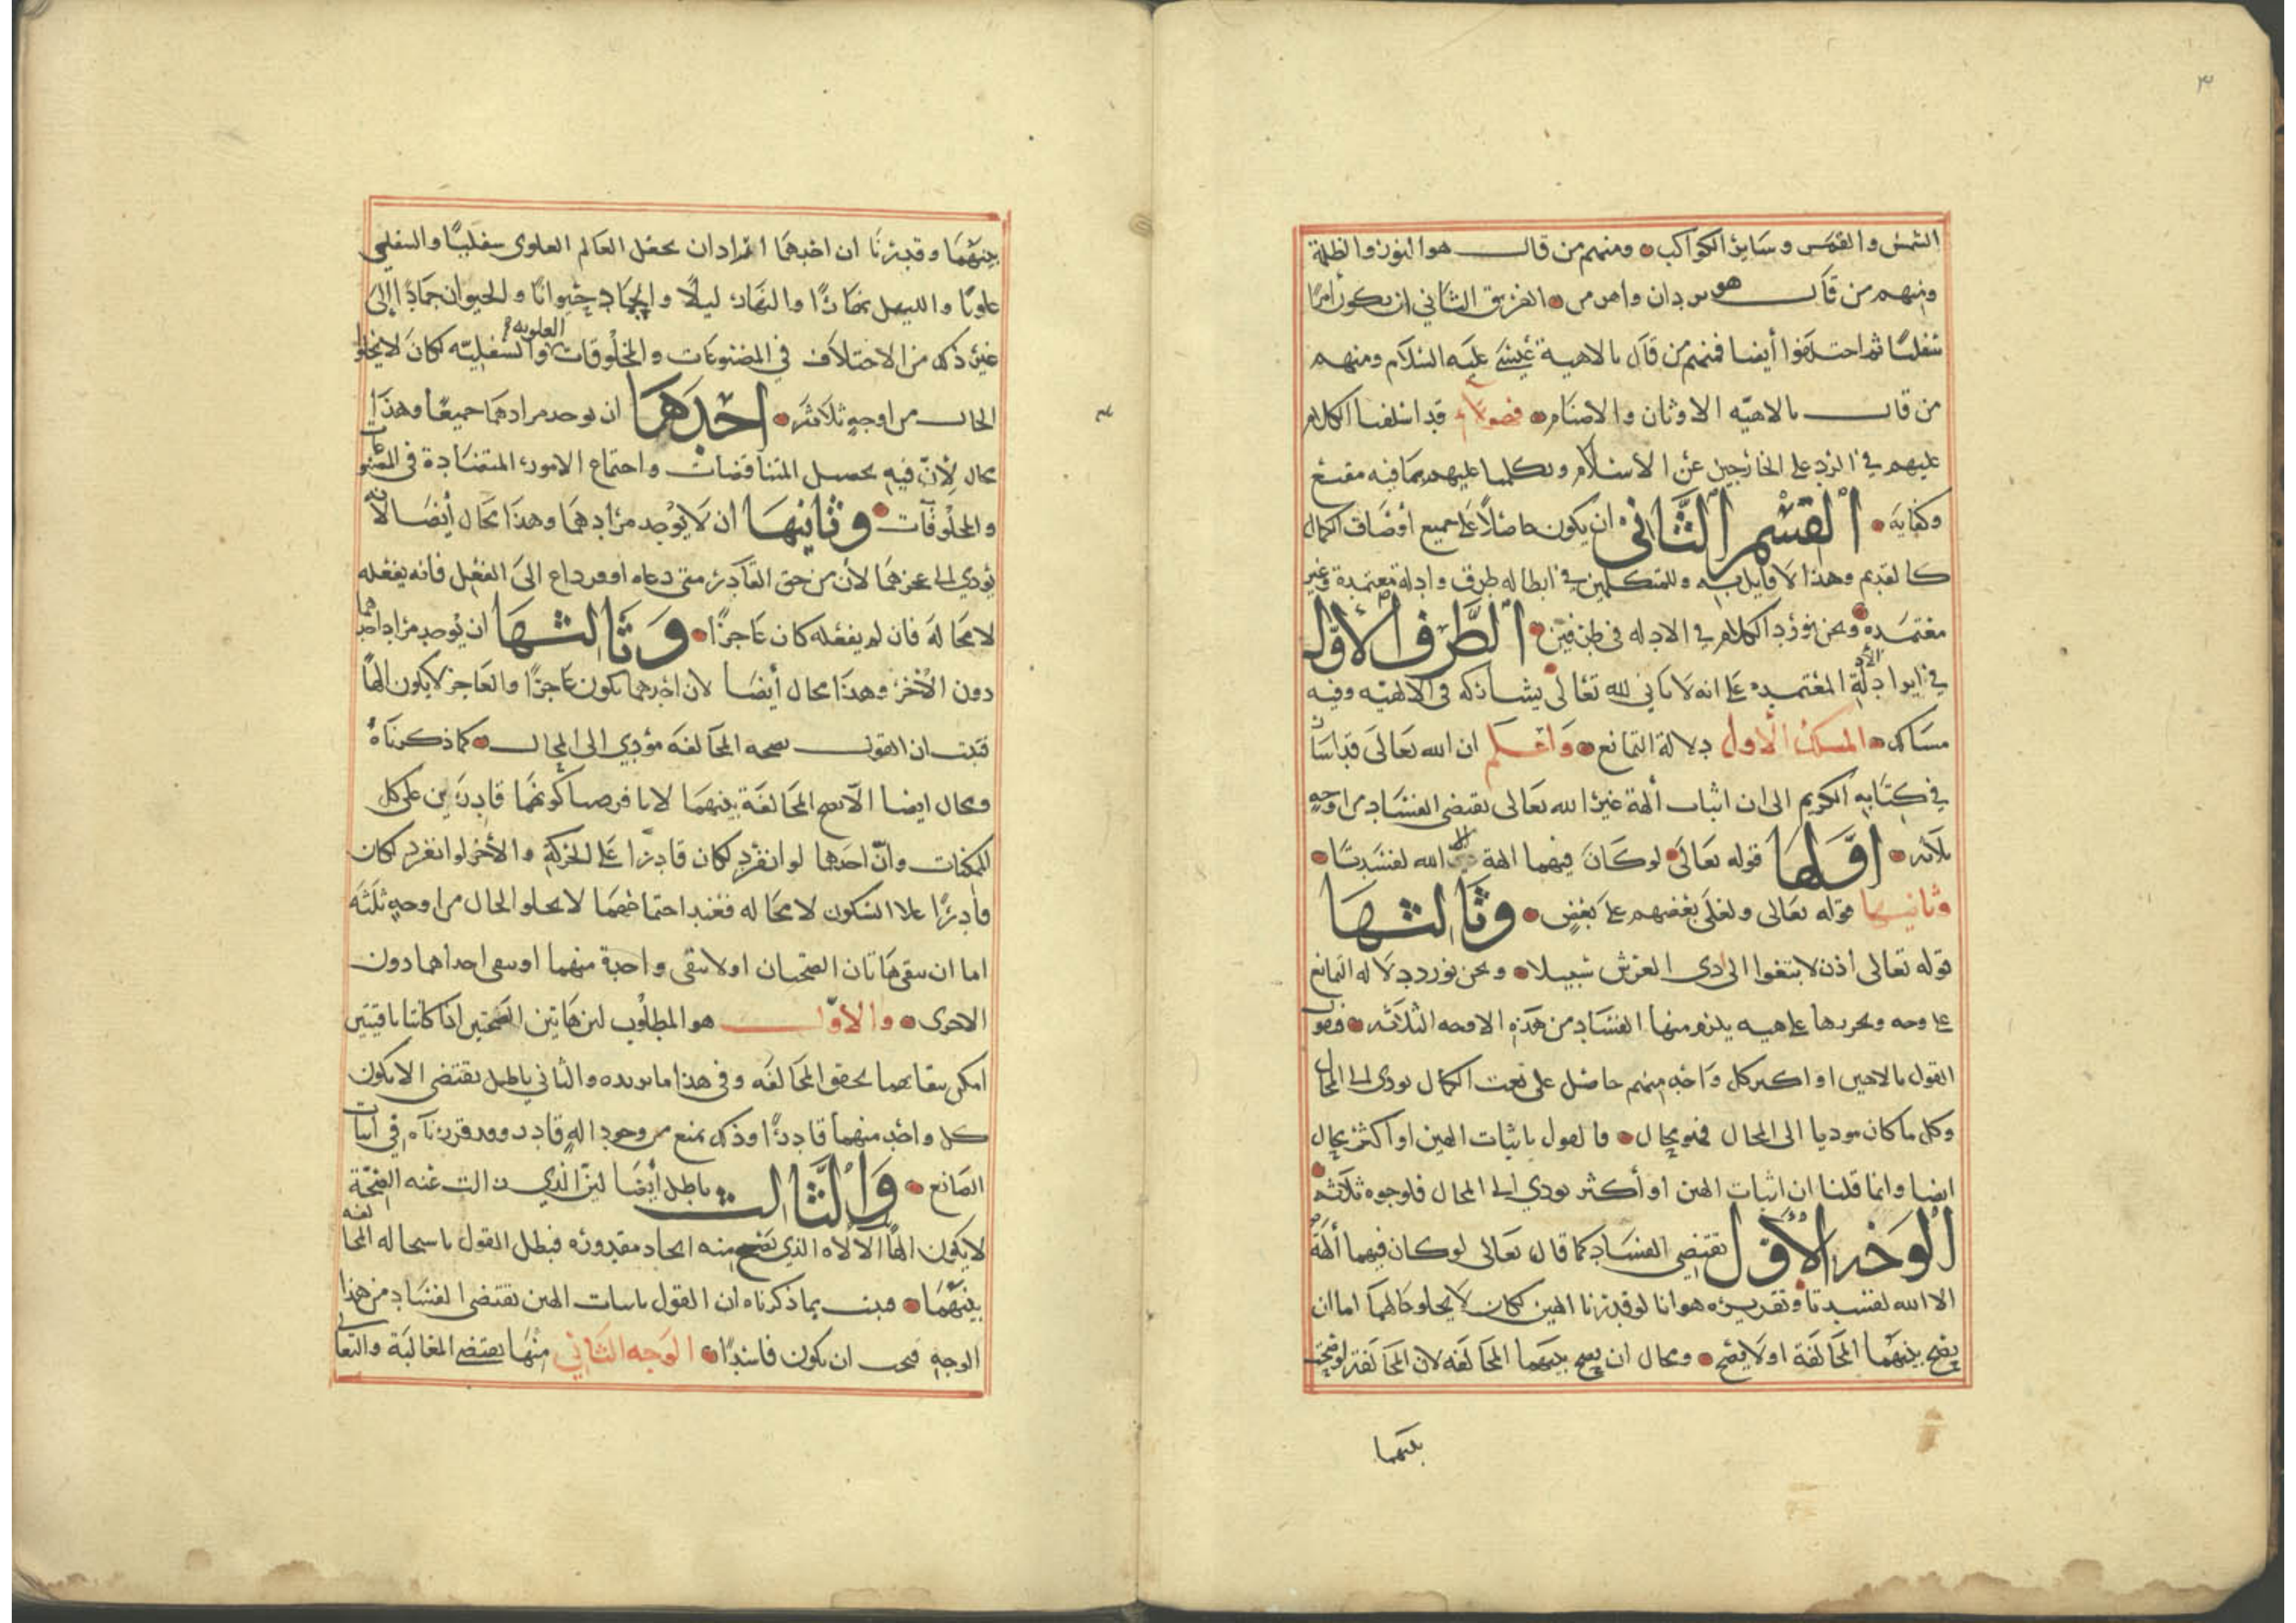 ٣
الشمس والقمر وسائر الكواكب ومنهم من قال هو النور والظلمة
ومنهم من قال هو يزدان واهرمن الفريق الثاني ان يكون أمرا
سفليا ثم اختلفوا أيضا فمنهم من قال بالاهية عيسى عليه السلام ومنهم
من قال بالاهيه الاوثان والاصنام فهولاء قد اسلفنا الكلام
عليهم في الرد على الخارجين عن الاسلام وتكلمنا عليهم بما فيه مقنع
وكفايه القسم الثاني ان يكون حاصلا على جميع أوصاف الكمال
كالقديم وهذا لا قايل به وللمتكلمين في ابطاله طرق وادلة معتمدة وغير
معتمده ونحن نورد الكلام في الادله في طرفين الطرف الأول
في ايراد الأدلة المعتمده على انه لا ثاني لله تعالى يشاركه في الالهيه وفيه
مسالك المسلك الأول دلالة التمانع واعلم ان الله تعالى قد اشار
في كتابه الكريم الى ان اثبات ألهة غير الله تعالى يقتضى الفساد من اوجه
ثلاثه اولها قوله تعالى لو كان فيهما الهة الا الله لفسدتا
وثانيها قوله تعالى ولعلى بعضهم على بعض وثالثها
قوله تعالى اذن لابتغوا الى ذى العرش سبيلا ونحن نورد دلاله التمانع
على وجه ونحررها على هيه يلزم منها الفساد من هذه الاوجه الثلاثه فنقول
القول بالاهين او اكبر كل واحد منهم حاصل على نعت الكمال يودى الى المحال
وكل ما كان موديا الى المحال فهو محال فالقول باثبات الهين او أكثر محال
ايضا وانما قلنا ان اثبات الهين او أكثر يودي الى المحال فلوجوه ثلاثه
الوجه الأول يقتضي الفساد كما قال تعالى لو كان فيهما ألهة
الا الله لفسدتا وتقريره هو انا لو قدرنا الهين لكان لا يخلو حالهما اما ان
يصح بينهما المخالفة او لا يصح ومحال ان يصح بينهما المخالفه لان المخالفة لو صحت
بينهما
بينهما وقدرنا ان احدهما اراد ان يجعل العالم العلوى سفليا والسفلي
علويا والليل نهارا والنهار ليلا والجماد حيوانا والحيوان جمادا الى
غير ذلك من الاختلاف في المصنوعات والمخلوقات العلويه والسفليه لكان لا يخلو
الحال من اوجه ثلاثة احدها ان يوجد مرادهما جميعا وهذا
محال لأن فيه يحصل المتناقضات واجتماع الامور المتضادة في المصنوعات
والمخلوقات وثانيها ان لا يوجد مرادهما وهذا محال أيضا لانه
يؤدي الى عجزهما لأن من حق القادر متى دعاه اوفر داع الى الفعل فأنه يفعله
لا محالة فان لم يفعله كان عاجزا وثالثها ان يوجد مراد احدهما
دون الأخر وهذا محال أيضا لان احدهما يكون عاجزا والعاجز لا يكون الها
فثبت ان القول بصحه المخالفه مؤدي الى المحال كما ذكرناه
ومحال ايضا الا تصح المخالفة بينهما لانا فرضنا كونهما قادرين على كل
الممكنات وأن احدها لو انفرد لكان قادرا على الحركة والأخر لو انفرد لكان
قادرا على السكون لا محاله فعند اجتماعهما لا يخلو الحال من اوجه ثلثه
اما ان تبقى هاتان الصحتان او لا تبقى واحدة منهما او تبقى احداهما دون
الاخرى والاول هو المطلوب لان هاتين الصحتين اذا كانتا باقيتين
امكن ببقايهما تحقق المخالفه وفي هذا ما نريده والثاني باطل يقتضى الا يكون
كل واحد منهما قادرا وذلك يمنع من وجود اله قادر وقد قررناه في اثبات
الصانع والثالث باطل أيضا لان الذي زالت عنه الصحة
لا يكون الها الا لاه الذي تصح منه ايجاد مقدوره فبطل القول باستحاله المخالفه
بينهما فثبت بما ذكرناه ان القول باثبات الهين يقتضى الفساد من هذا
الوجه فيجب ان يكون فاسدا الوجه الثاني منها يقتضى المغالبة والتعالى